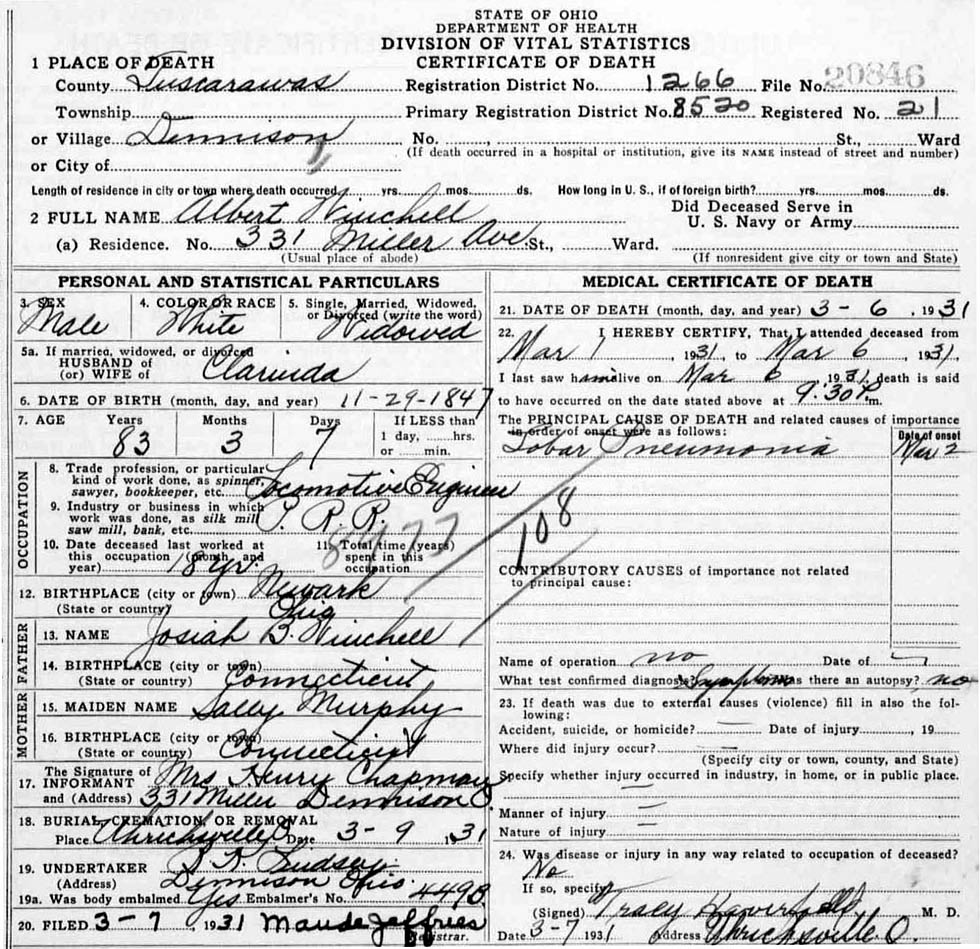 STATE OF OHIO
DEPARTMENT OF HEALTH
DIVISION OF VITAL STATISTICS
CERTIFICATE OF DEATH
1 PLACE OF DEATH
County Tuscarawas Registration District No. 1266 File No. 20846
Township Primary Registration District No. 8520 Registered No. 21
or Village Dennison No. St., Ward
(If death occurred in a hospital or institution, give its NAME instead of street and number)
or City of
Length of residence in city or town where death occurred yrs. mos. ds. How long in U. S., if of foreign birth? yrs. mos. ds.
2 FULL NAME Albert Winchell Did Deceased Serve in U. S. Navy or Army
(a) Residence. No. 331 Miller Ave St., Ward.
(Usual place of abode) (If nonresident give city or town and State)
PERSONAL AND STATISTICAL PARTICULARS
3. SEX Male 4. COLOR OR RACE White 5. Single, Married, Widowed, or Divorced (write the word) Widowed
5a. If married, widowed, or divorced
HUSBAND of
(or) WIFE of Clarinda
6. DATE OF BIRTH (month, day, and year) 11-29-1847
7. AGE Years Months Days If LESS than
83 3 7 1 day, hrs.
or min.
OCCUPATION
8. Trade profession, or particular
kind of work done, as spinner,
sawyer, bookkeeper, etc. Locomotive Engineer
9. Industry or business in which
work was done, as silk mill
saw mill, bank, etc. P. R. R.
10. Date deceased last worked at
this occupation (month, and
year) 18 yr.
11. Total time (years)
spent in this
occupation
12. BIRTHPLACE (city or town) Newark
(State or country) Ohio
FATHER
13. NAME Josiah B. Winchell
14. BIRTHPLACE (city or town)
(State or country) Connecticut
MOTHER
15. MAIDEN NAME Sally Murphy
16. BIRTHPLACE (city or town)
(State or country) Connecticut
17. The Signature of
INFORMANT Mrs. Henry Chapman
and (Address) 331 Miller Dennison O.
18. BURIAL, CREMATION, OR REMOVAL
Place Uhrichsville O. Date 3-9 1931
19. UNDERTAKER
(Address) Dennison Ohio.
19a. Was body embalmed Yes Embalmer's No. 449B
20. FILED 3-7 1931 Maude Jeffries
Registrar.
MEDICAL CERTIFICATE OF DEATH
21. DATE OF DEATH (month, day, and year) 3-6, 1931
22. I HEREBY CERTIFY, That I attended deceased from
Mar 1, 1931, to Mar 6, 1931.
I last saw him alive on Mar 6, 1931, death is said
to have occurred on the date stated above at 9:30 P. m.
The PRINCIPAL CAUSE OF DEATH and related causes of importance
in order of onset were as follows: Date of onset
Lobar Pneumonia Mar 2
108
CONTRIBUTORY CAUSES of importance not related
to principal cause:
Name of operation no Date of
What test confirmed diagnosis? Symptoms Was there an autopsy? no
23. If death was due to external causes (violence) fill in also the fol-
lowing:
Accident, suicide, or homicide? Date of injury , 19
Where did injury occur?
(Specify city or town, county, and State)
Specify whether injury occurred in industry, in home, or in public place.
Manner of injury
Nature of injury
24. Was disease or injury in any way related to occupation of deceased?
No
If so, specify
(Signed) Tracy M. D.
Date 3-7 1931 Address Uhrichsville O.